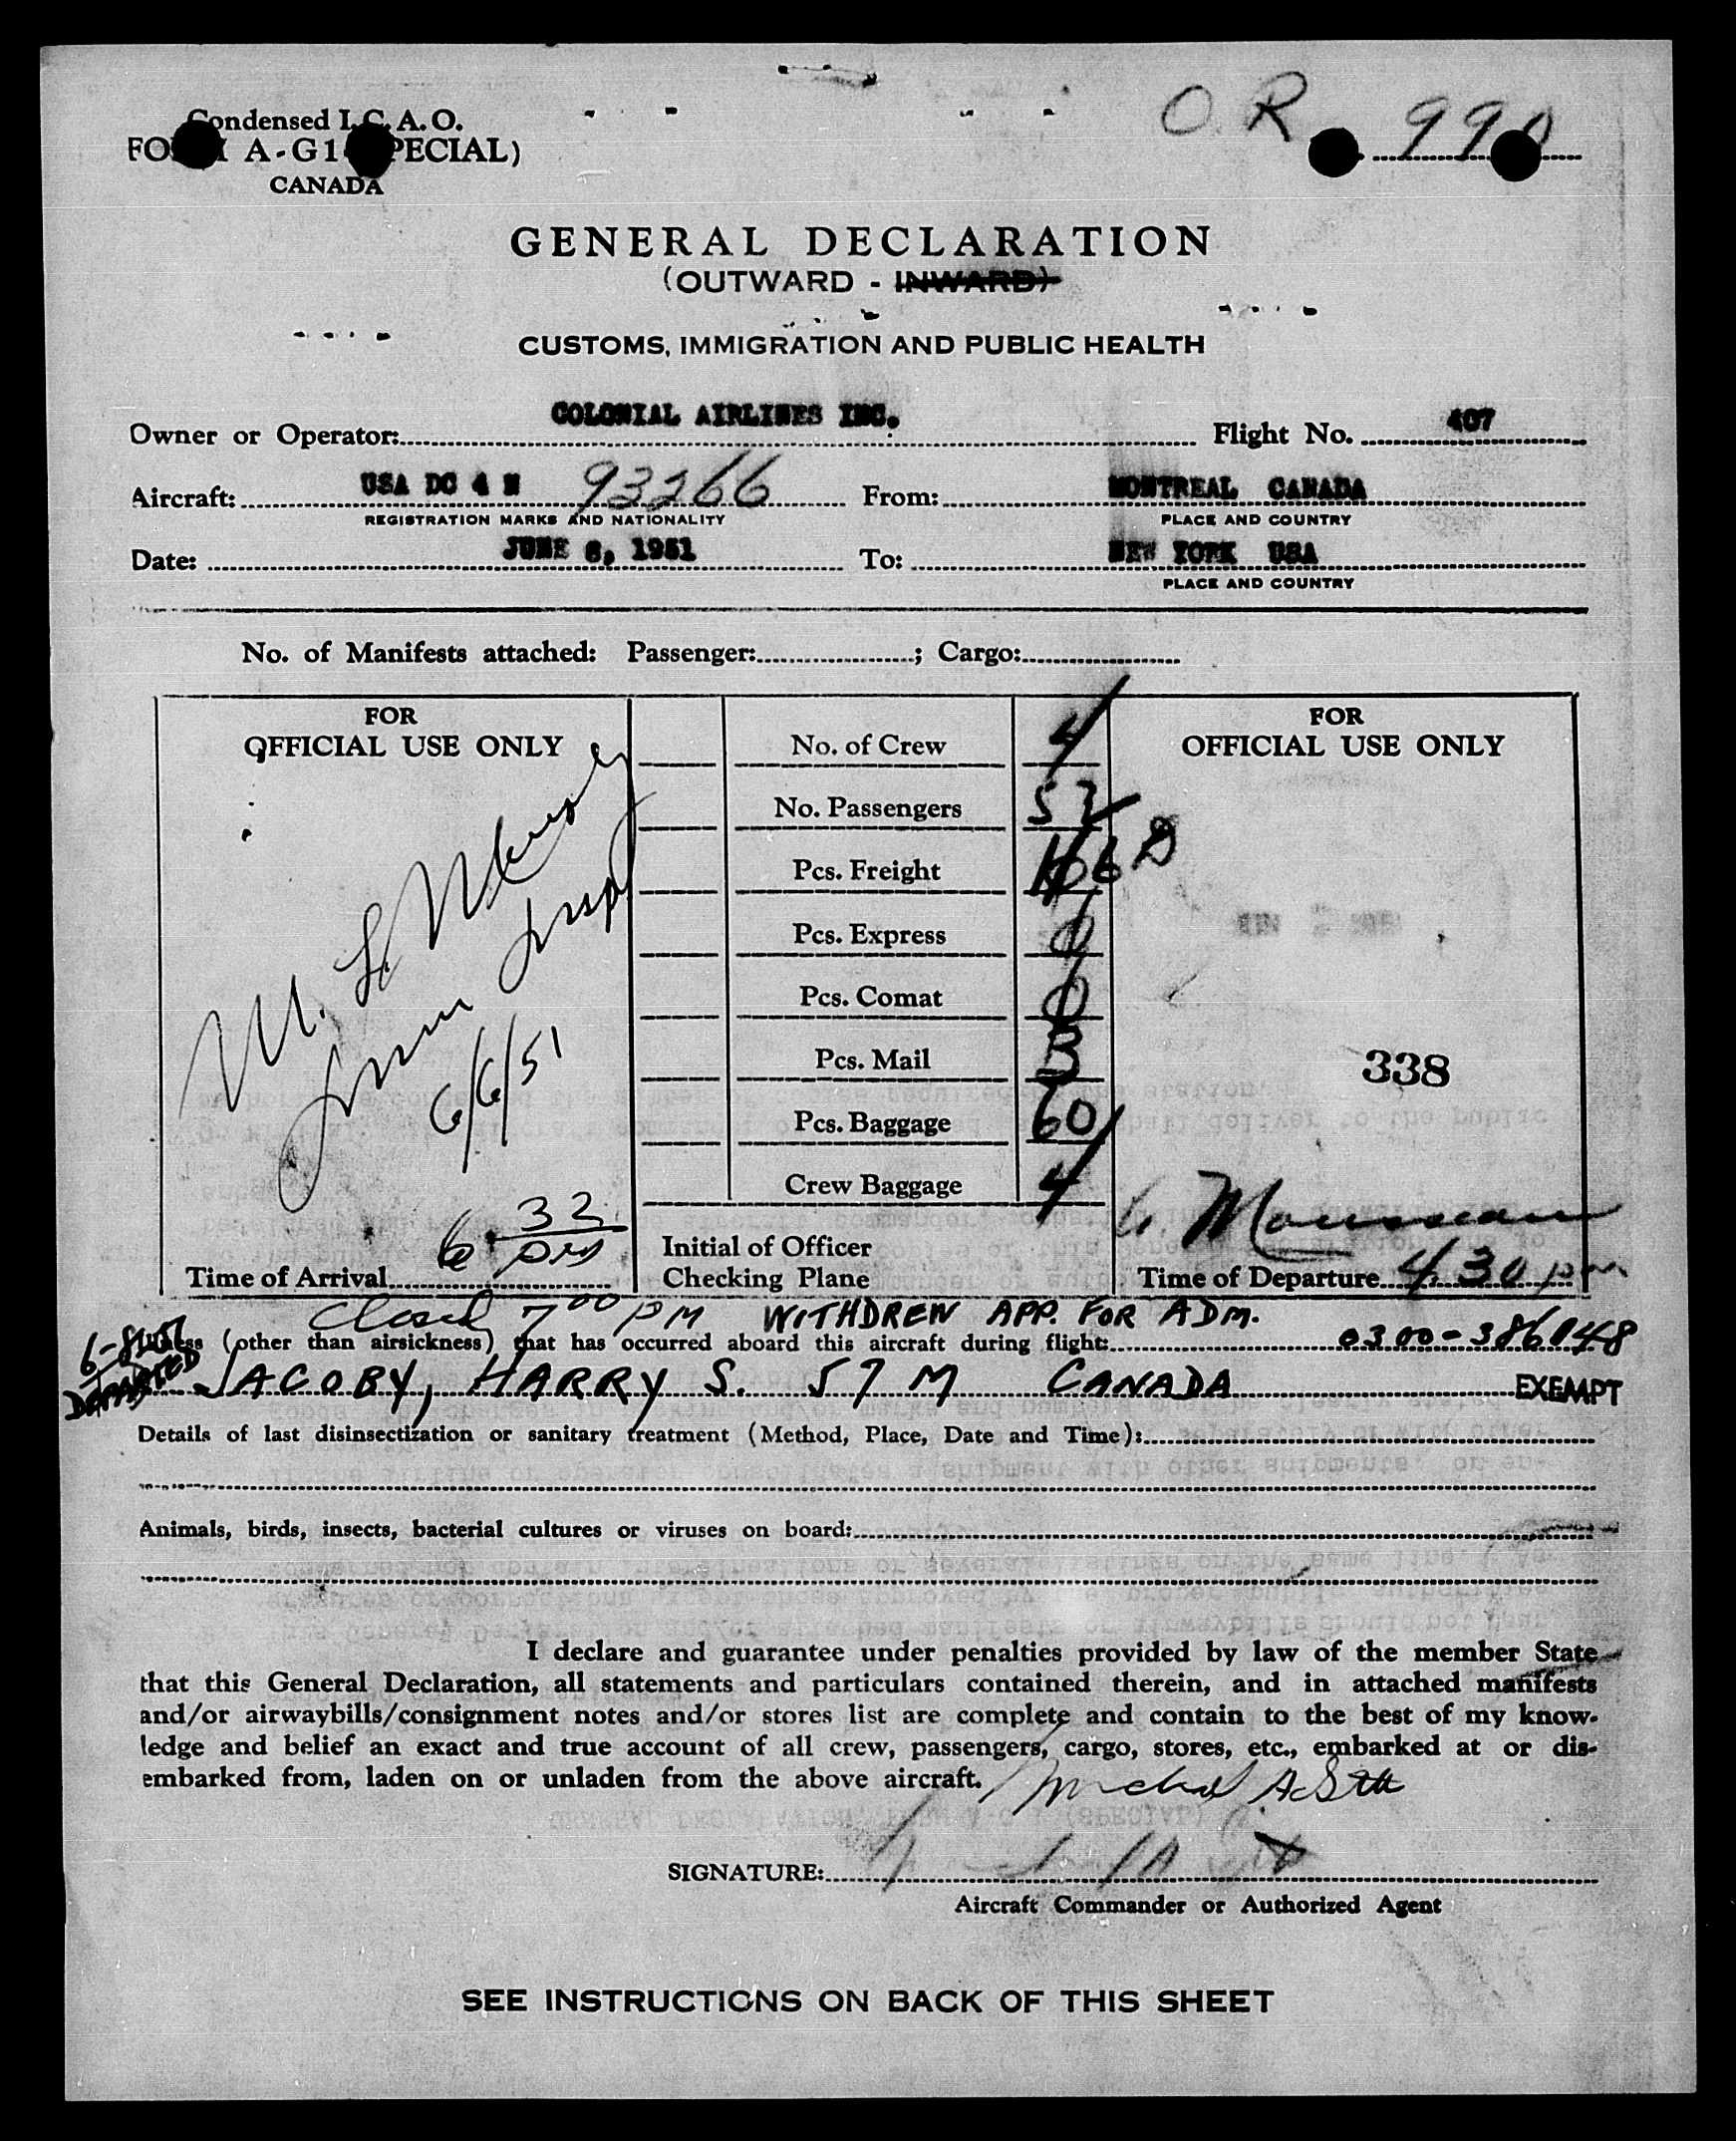 Condensed I.C.A.O. O.R. 990
FORM A-G1 (SPECIAL)
CANADA
GENERAL DECLARATION
(OUTWARD - INWARD)
CUSTOMS, IMMIGRATION AND PUBLIC HEALTH
Owner or Operator: COLONIAL AIRLINES INC. Flight No. 407
Aircraft: USA DC 4 N 93266 From: MONTREAL CANADA
REGISTRATION MARKS AND NATIONALITY PLACE AND COUNTRY
Date: JUNE 6, 1951 To: NEW YORK USA
PLACE AND COUNTRY
No. of Manifests attached: Passenger: ; Cargo:
FOR OFFICIAL USE ONLY
M. L.
Imm Insp
6/6/51
6 32 pm
Time of Arrival
No. of Crew 4
No. Passengers 57
Pcs. Freight
Pcs. Express 0
Pcs. Comat 0
Pcs. Mail 3
Pcs. Baggage 60
Crew Baggage 4
Initial of Officer
Checking Plane
FOR OFFICIAL USE ONLY
338
Mousseau
Time of Departure 4.30 pm
Closed 7 00 PM WITHDREW APP. FOR ADM.
(other than airsickness) that has occurred aboard this aircraft during flight: 0300-386148
DEPARTED JACOBY, HARRY S. 57 M CANADA EXEMPT
Details of last disinsectization or sanitary treatment (Method, Place, Date and Time):
Animals, birds, insects, bacterial cultures or viruses on board:
I declare and guarantee under penalties provided by law of the member State
that this General Declaration, all statements and particulars contained therein, and in attached manifests
and/or airwaybills/consignment notes and/or stores list are complete and contain to the best of my know-
ledge and belief an exact and true account of all crew, passengers, cargo, stores, etc., embarked at or dis-
embarked from, laden on or unladen from the above aircraft.
SIGNATURE:
Aircraft Commander or Authorized Agent
SEE INSTRUCTIONS ON BACK OF THIS SHEET